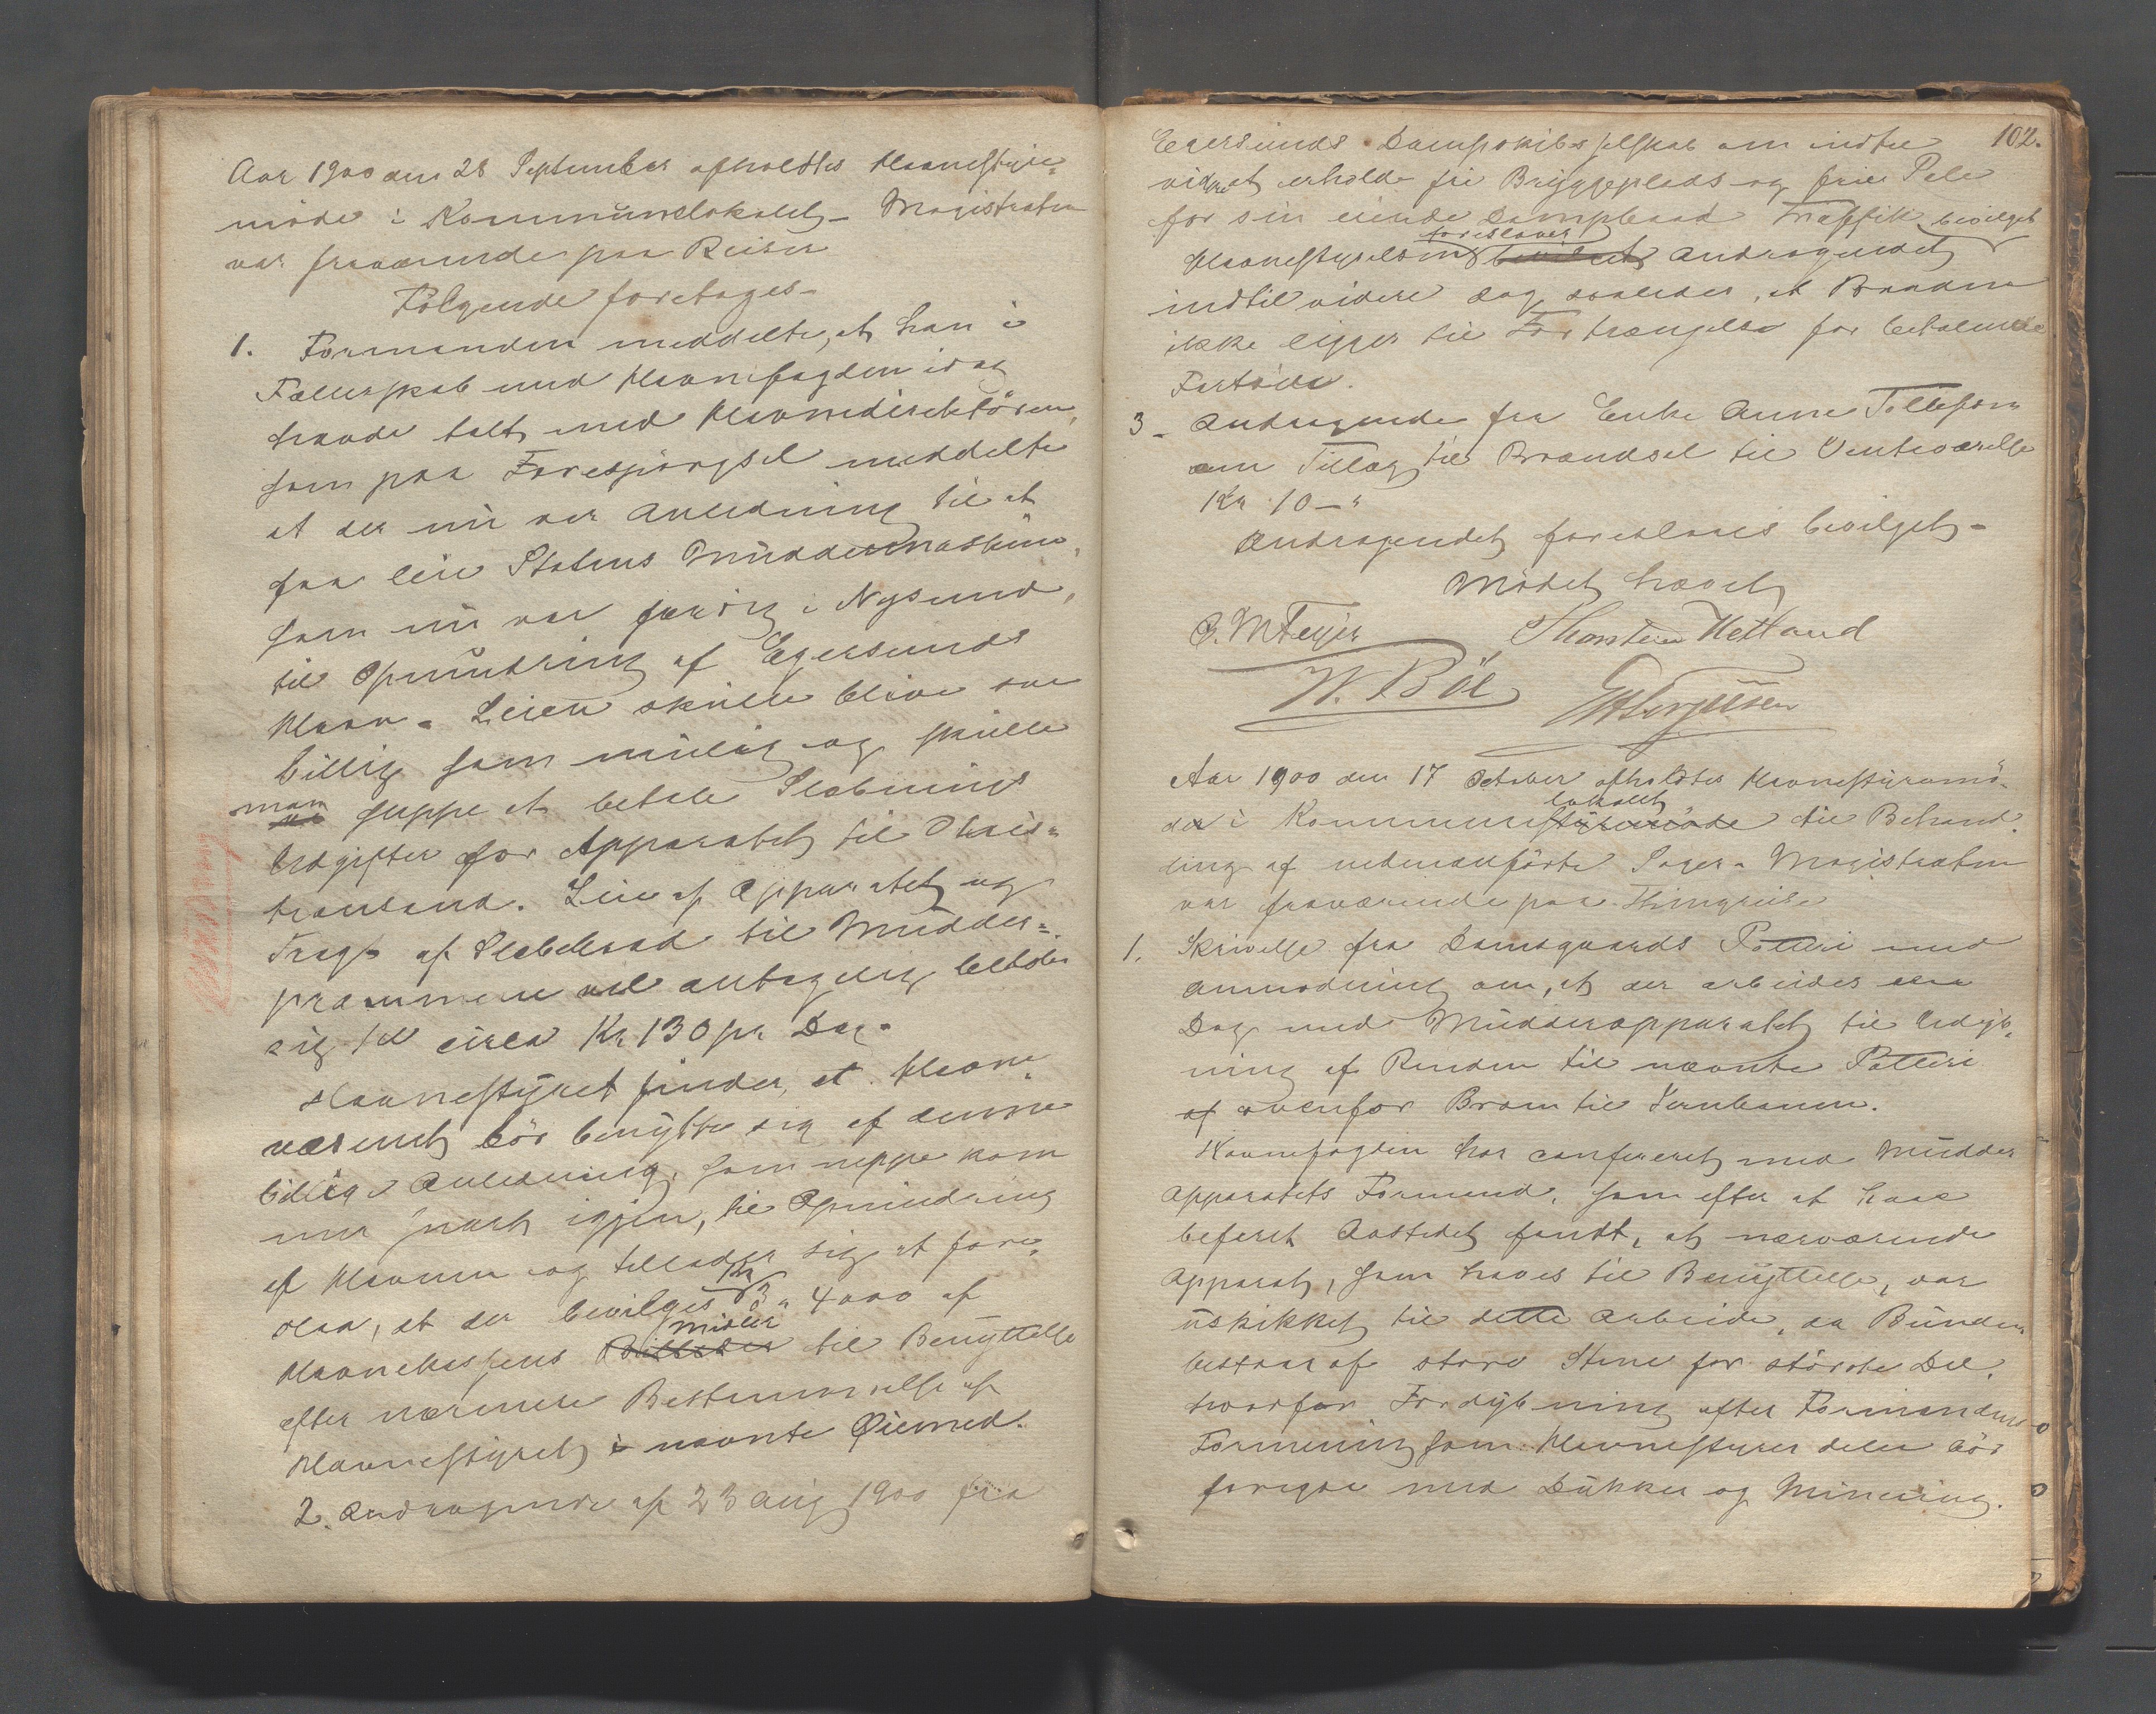 Aar 1900 den 28 September afholdtes Havnestyre=
møde i Kommunelokalet – Magistraten
var fraværende paa Reiser
Følgende foretoges –
1. Formanden meddelte, at han i
Fællesskab med Havnefogden idag
havde talt med Havnedirektören,
som paa Forespörgsel meddelte
at der nu var Anledning til at
faa leie Statens Muddermaskine,
som nu var færdig i Nysund,
til Opmudring af Egersunds
Havn – Leien skulle blive saa
billig som mulig og skulle
man slippe at betale Slæbnings
Udgifter for Apparatet til Chris=
tianssand. Leie af Apparatet og
Fragt af Slæbebaad til Mudder=
prammene vil antagelig beløbe
sig til circa Kr 130 pr Dag.
Havnestyret finder, at Havn=
væsenet bör benytte sig af denne
billige Anledning, som neppe kom=
mer snart igjen, til Opmudring
af Havnen og tillader sig at fore=
slaa, at der bevilges Kr 4000 af
Havnekassens Midler til Benyttelse
efter nærmere Bestemmelse af
Havnestyret i nævnte Øiemed.
2. Andragende af 23 Aug 1900 fra
102.
Egersunds Dampskibsselskab om indtil
videre at erholde fri Bryggeplads og frie Pele
for sin eiende Dampbaad Trafik bevilget
Havnestyret foreslaaer Andragendet
indtil videre dog saaledes, at Baaden
ikke ligger til Fortrængelse for betalende
Fartöier.
3 – Andragende fra Enke Anne Tollefsen
om Tillæg til Brændsel til Venteværelse
Kr 10 – "
Andragendet foreslaaes bevilget –
Mödet hævet
C. M Feyer Thorsten Hetland
W. Böe
Aar 1900 den 17 October afholdtes Havnestyremö=
de i Kommunelokalet til Behand=
ling af nedenanförte Sager – Magistraten
var fraværende paa Thingreise
1. Skrivelse fra Damsgaards Potteri med
Anmodning om, at der arbeides en
Dag med Mudderapparatet til Uddyb=
ning af Renden til nævnte Potteri
af ovenfor Broen til Jernbanen.
Havnefogden har confereret med Mudder
apparatets Formand, som efter at have
beferet Aastedet fandt, at nærværende
Apparat, som haves til Benyttelse, var
uskikket til dette Arbeide, da Bunden
bestaar af store Stene for störste Del,
hvorfor Fordybning efter Formandens
Formening som Havnestyret deler bör
foregaa med Dykker og Minering.